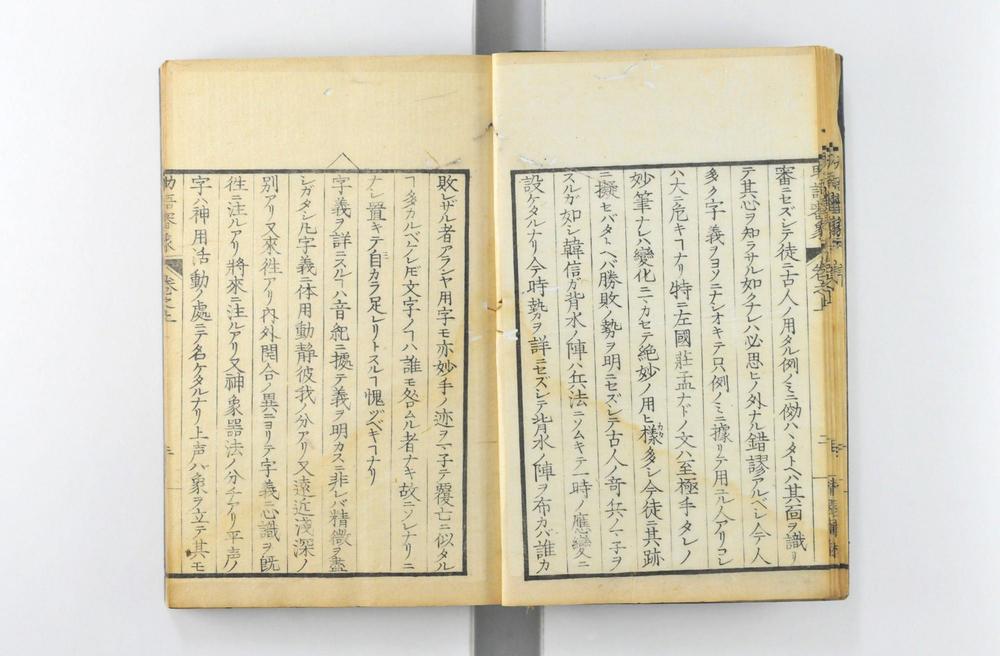 審ニセズシテ徒ニ古人ノ用タル例ノミニ倣ハヾタトヘバ其面ヲ識リ
テ其心ヲ知ラサル如クナレハ必思ヒノ外ナル錯謬アルベシ今人
多ク字義ヲヨソニナシオキテ只例ノミニ據リテ用ユル人アリコレ
ハ大ニ危キヿナリ特ニ左國莊孟ナドノ文ハ至極手タレノ
妙筆ナレハ變化ニマカセテ絶妙ノ用ヒ樣多シ今徒ニ其跡
ニ擬セバタトヘバ勝敗ノ勢ヲ明ニセズシテ古人ノ奇兵ノマ子ヲ
スルガ如シ韓信ガ背水ノ陣ハ兵法ニソムキテ一時ノ應變ニ
設ケタルナリ今時勢ヲ詳ニセズシテ背水ノ陣ヲ布カバ誰カ
敗レザル者アランヤ用字モ亦妙手ノ迹ヲマ子テ覆亡ニ似タル
ヿ多カルベシ𪜈文字ノヿハ誰モ咎ムル者ナキ故ニソレナリニ
ナシ置キテ自カラ足レリトスルヿ愧ヅベキヿナリ
字義ヲ詳ニスルハ音紀ニ據テ義ヲ明カスニ非レバ精微ヲ盡
シガタシ凡字義ニ体用動靜彼我ノ分アリ又遠近淺深ノ
別アリ又來往アリ内外開合ノ異ニヨリテ字義ニ心識ヲ
徃ニ注ルアリ將來ニ注ルアリ又神象器法ノ分チアリ平声ノ
字ハ神用活動ノ處ニテ名ケタルナリ上声ハ象ヲ立テ其モ